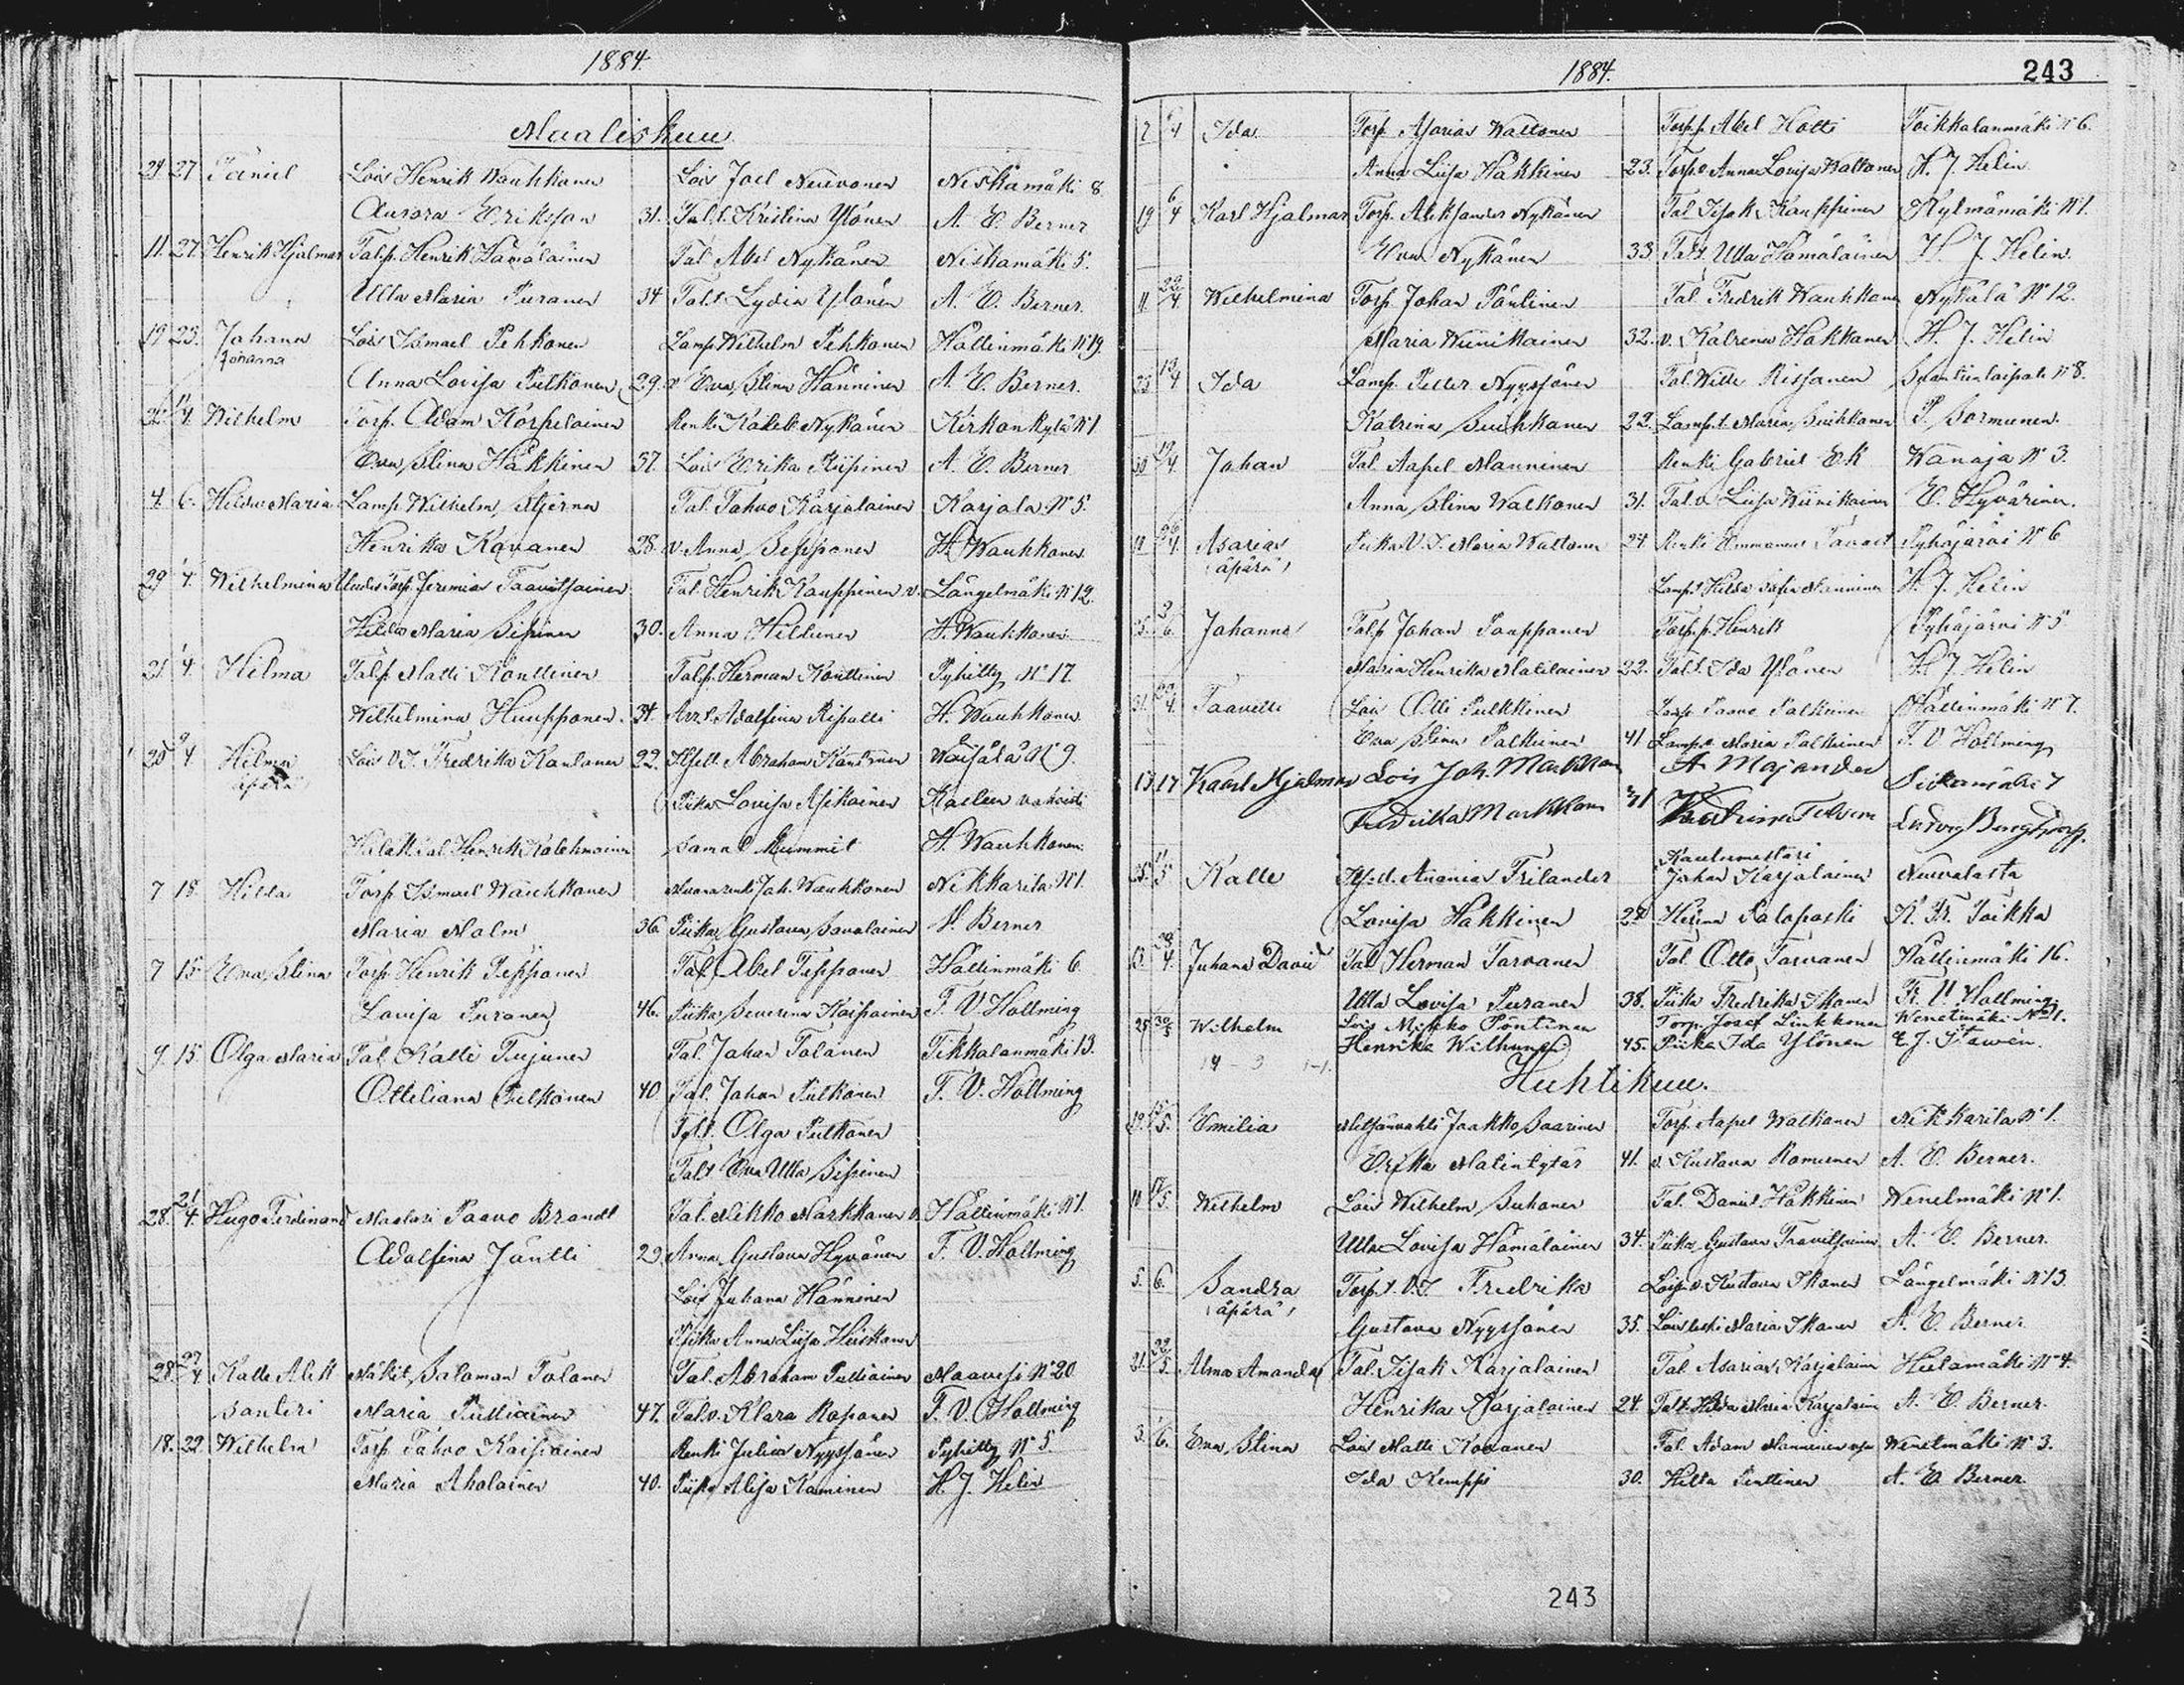 1884.
Maaliskuu
21 27 Taniel Lois Henrik Wauhkonen Lois Joel Neuvonen Niskamäki 8.
Aurora Eriksson 31. Tal.t. Kristina Ylönen A. E. Berner
11. 27. Henrik Hjalmar Talp. Henrik Hämäläinen Tal. Abel Nykänen Niskamäki 5.
Ulla Maria Puranen 34 Tal.t. Lydia Ylönen A. E. Berner.
19 23. Johann Lois Ismael Pehkonen Lamp. Wilhelm Pehkonen Hällinmäki N:19.
Johanna
Anna Lovisa Pulkonen 29. v. Eva Stina Hänninen A. E. Berner.
Wilhelm Torp. Adam Korpelainen Renki Kaleb Nykänen Kirkonkylä N:1
Eva Stina Häkkinen 37. Lois Erika Riipinen A. E. Berner
4. 6. Hilda Maria Lamp. Wilhelm Stjerna Tal. Tahvo Karjalainen Karjala N:5.
Henrika Kovanen 28. v. Anna Sepponen H. Wauhkonen
29 4. Wilhelmina Torp. Jeremias Taavitsainen Tal. Henrik Kauppinen v. Längelmäki N:12.
Hilda Maria Sipinen 30. Anna Hildunen H. Wauhkonen
21 4. Hilma Talp. Matti Konttinen Talp. Herman Konttinen Pyhitty N:o 17.
Wilhelmina Huupponen. 34. Adolfina Ripatti H. Wauhkonen
20 4. Hilma Lois v.T. Fredrika Kaulanen 22. Itsell. Abraham Waisälä N:9.
äpärä
Piika Lovisa Asikainen
H. Wauhkonen.
7 15. Hilda Torp. Ismael Wauhkonen Joh. Wauhkonen Nikkarila N:1.
Maria Malm 36. Piika Gustava Savolainen A. Berner
7 15. Eva Stina Torp. Henrik Tepponen Tal. Abel Tepponen Hällinmäki 6.
Lovisa Puranen 46. Piika Severina Kaipainen T. V. Hollming
9. 15. Olga Maria Tal. Kalle Tujunen Tal. Johan Tolanen Tikkalanmäki 13.
Otteliana Pulkonen 40 Tal. Johan Pulkonen T. V. Hollming
Tal.t. Olga Pulkonen
Tal.t. Eva Ulla Sipinen
28. 21/4. Hugo Ferdinand Maalari Paavo Brandt Tal. Mikko Markkanen v. Hällinmäki N:1.
Adolfina Jäntti 29. Anna Gustava Hyvönen T. V. Hollming
Lois Juhana Hänninen
Piika Anna Liisa Heiskanen
28. 27/4 Kalle Aleks Mäkit. Salomon Tolanen Tal. Abraham Pulliainen Naavesi N:20
Santeri Maria Pulliainen 47. Tal.v. Klara Raponen T. V. Hollming
18. 22. Wilhelm Torp. Tahvo Kaipainen Renki Julius Nyyssönen Pyhitty N:5.
Maria Aholainen 40. Piika Alisa Kaminen H. J. Helin
1884.
243
2 6/4 Ida Torp. Asarias Waltonen Torp.p. Abel Hotti Toikkalanmäki N:6.
Anna Liisa Häkkinen 23. Torp.v. Anna Lovisa Waltonen H. J. Helin
19 6/4 Karl Hjalmar Torp. Aleksander Nykänen Tal. Isak Kauppinen Kylmämäki N:1.
Eva Nykänen 33. Tal.t. Ulla Hämäläinen H. J. Helin.
11. 22/4. Wilhelmina Torp. Johan Pöntinen Tal. Fredrik Wauhkonen Nykälä N:12.
Maria Wiinikainen 32. v. Katrena Hakkanen H. J. Helin
25 12/4 Ida Lamp. Petter Nyyssönen Tal. Wille Rissanen N:8.
Katrina Suihkanen 22. Lamp.t. Maria Suihkanen P. Sormunen.
Johan Tal. Aapel Manninen Renki Gabriel Ek Wanaja N:3.
Anna Stina Walkonen 31. Tal.v. Liisa Wiinikainen E. Hyvärinen.
Asarias Piika v.T. Maria Waltonen 24. Renki Emmanuel Pyhäjärvi N:6
(äpärä)
Lamp.t. Hilda Sofia Manninen H. J. Helin
Johanna Talp. Johan Paappanen Torp.p. Henrik Pyhäjärvi N:5
Maria Henrika Matilainen 22. Tal.t. Ida Ylönen H. J. Helin
Taavetti Lois Olli Pulkkinen Paavo Palkinen Hällinmäki N:7.
Eva Stina Palkinen 41 Lamp.v. Maria Palkinen T. V. Hollming
13 17 Kaarl Hjalmar Lois Joh. Markkanen A. Majander 7
Fredrika Markkanen
28. 11/5. Kalle Itsell. Ananias Frilander Johan Karjalainen
Lovisa Häkkinen Helena K. Fr. Toikka
Juhana David Tal. Herman Tarvanen Tal. Otto Tarvanen Hällinmäki 16.
Ulla Lovisa Puranen 38. Piika Fredrika Ikonen T. V. Hollming.
25 30/5 Wilhelm Lois Mikko Pöntinen Torp. Josef Linkkonen Wenetmäki No 1.
Henrika Wilhunen 45. Piika Ida Ylönen
Huhtikuu.
19. 15/5. Emilia Metsänvahti Jaakko Saarinen Torp. Aapel Walkonen Nikkarila N:1.
Erika Matintytär 41. v. Kustava Romunen A. E. Berner.
10 17/5. Wilhelm Lois Wilhelm Suhonen Tal. Daniel Häkkinen Wenetmäki N:1.
Ulla Lovisa Hämäläinen 34. Piika Gustava Taavitsainen A. E. Berner.
5. 6. Sandra Torp.t. v.T. Fredrika Loisv. Kustava Ikonen Längelmäki N:13
(äpärä)
Gustava Nyyssönen 35. Loisleski Maria Ikonen A. E. Berner
21. 22/5. Alma Amanda Tal. Isak Karjalainen Tal. Asarias Karjalainen Hulamäki N:4.
Henrika Karjalainen 24. Tal.t. Hilda Maria Karjalainen A. E. Berner.
3. 6. Eva Stina Lois Matti Kovanen Tal. Adam Manninen Wenetmäki N:3.
Ida Kemppi 30. Hilta Penttinen A. E. Berner.
243